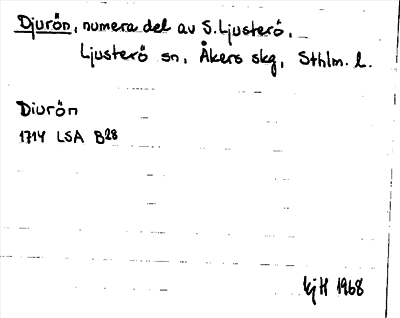 Djurön, numera del av S. Ljusterö,
Ljusterö sn, Åkers skg, Sthlm. l.
Diurön
1714 LSA B28
kjH 1968